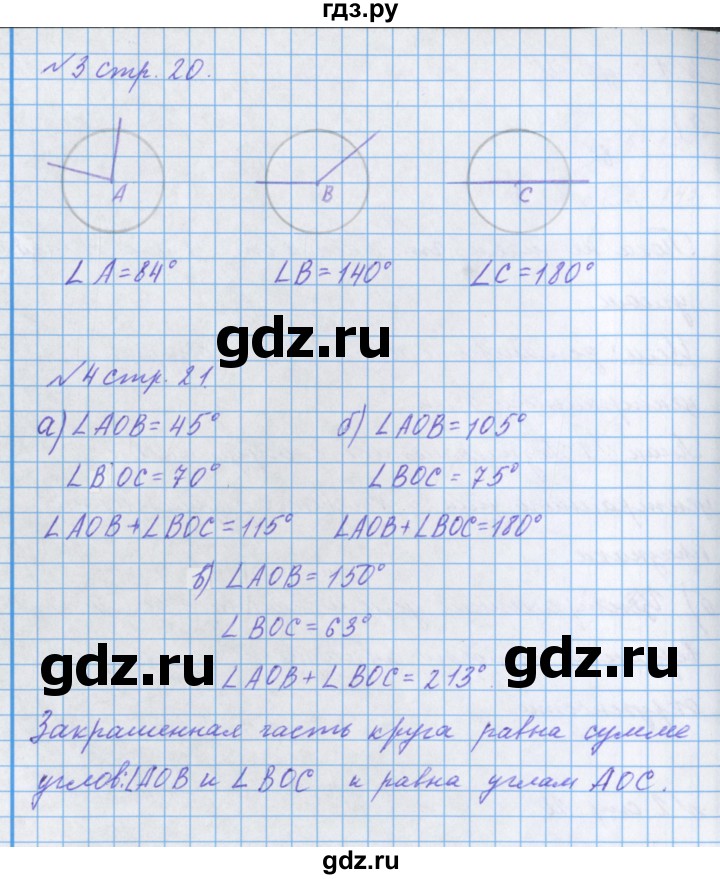 гдз.ру
№3 стр. 20.
A B C
∠A=84° ∠B=140° ∠C=180°
gdz.ru
№4 стр. 21
а) ∠AOB=45° б) ∠AOB=105°
∠BOC=70° ∠BOC=75°
∠AOB+∠BOC=115° ∠AOB+∠BOC=180°
б) ∠AOB=150°
∠BOC=63°
gdz.ru gdz.ru
∠AOB+∠BOC=213°.
Закрашенная часть круга равна сумме
углов:∠AOB и ∠BOC и равна углам AOC.
gdz.ru